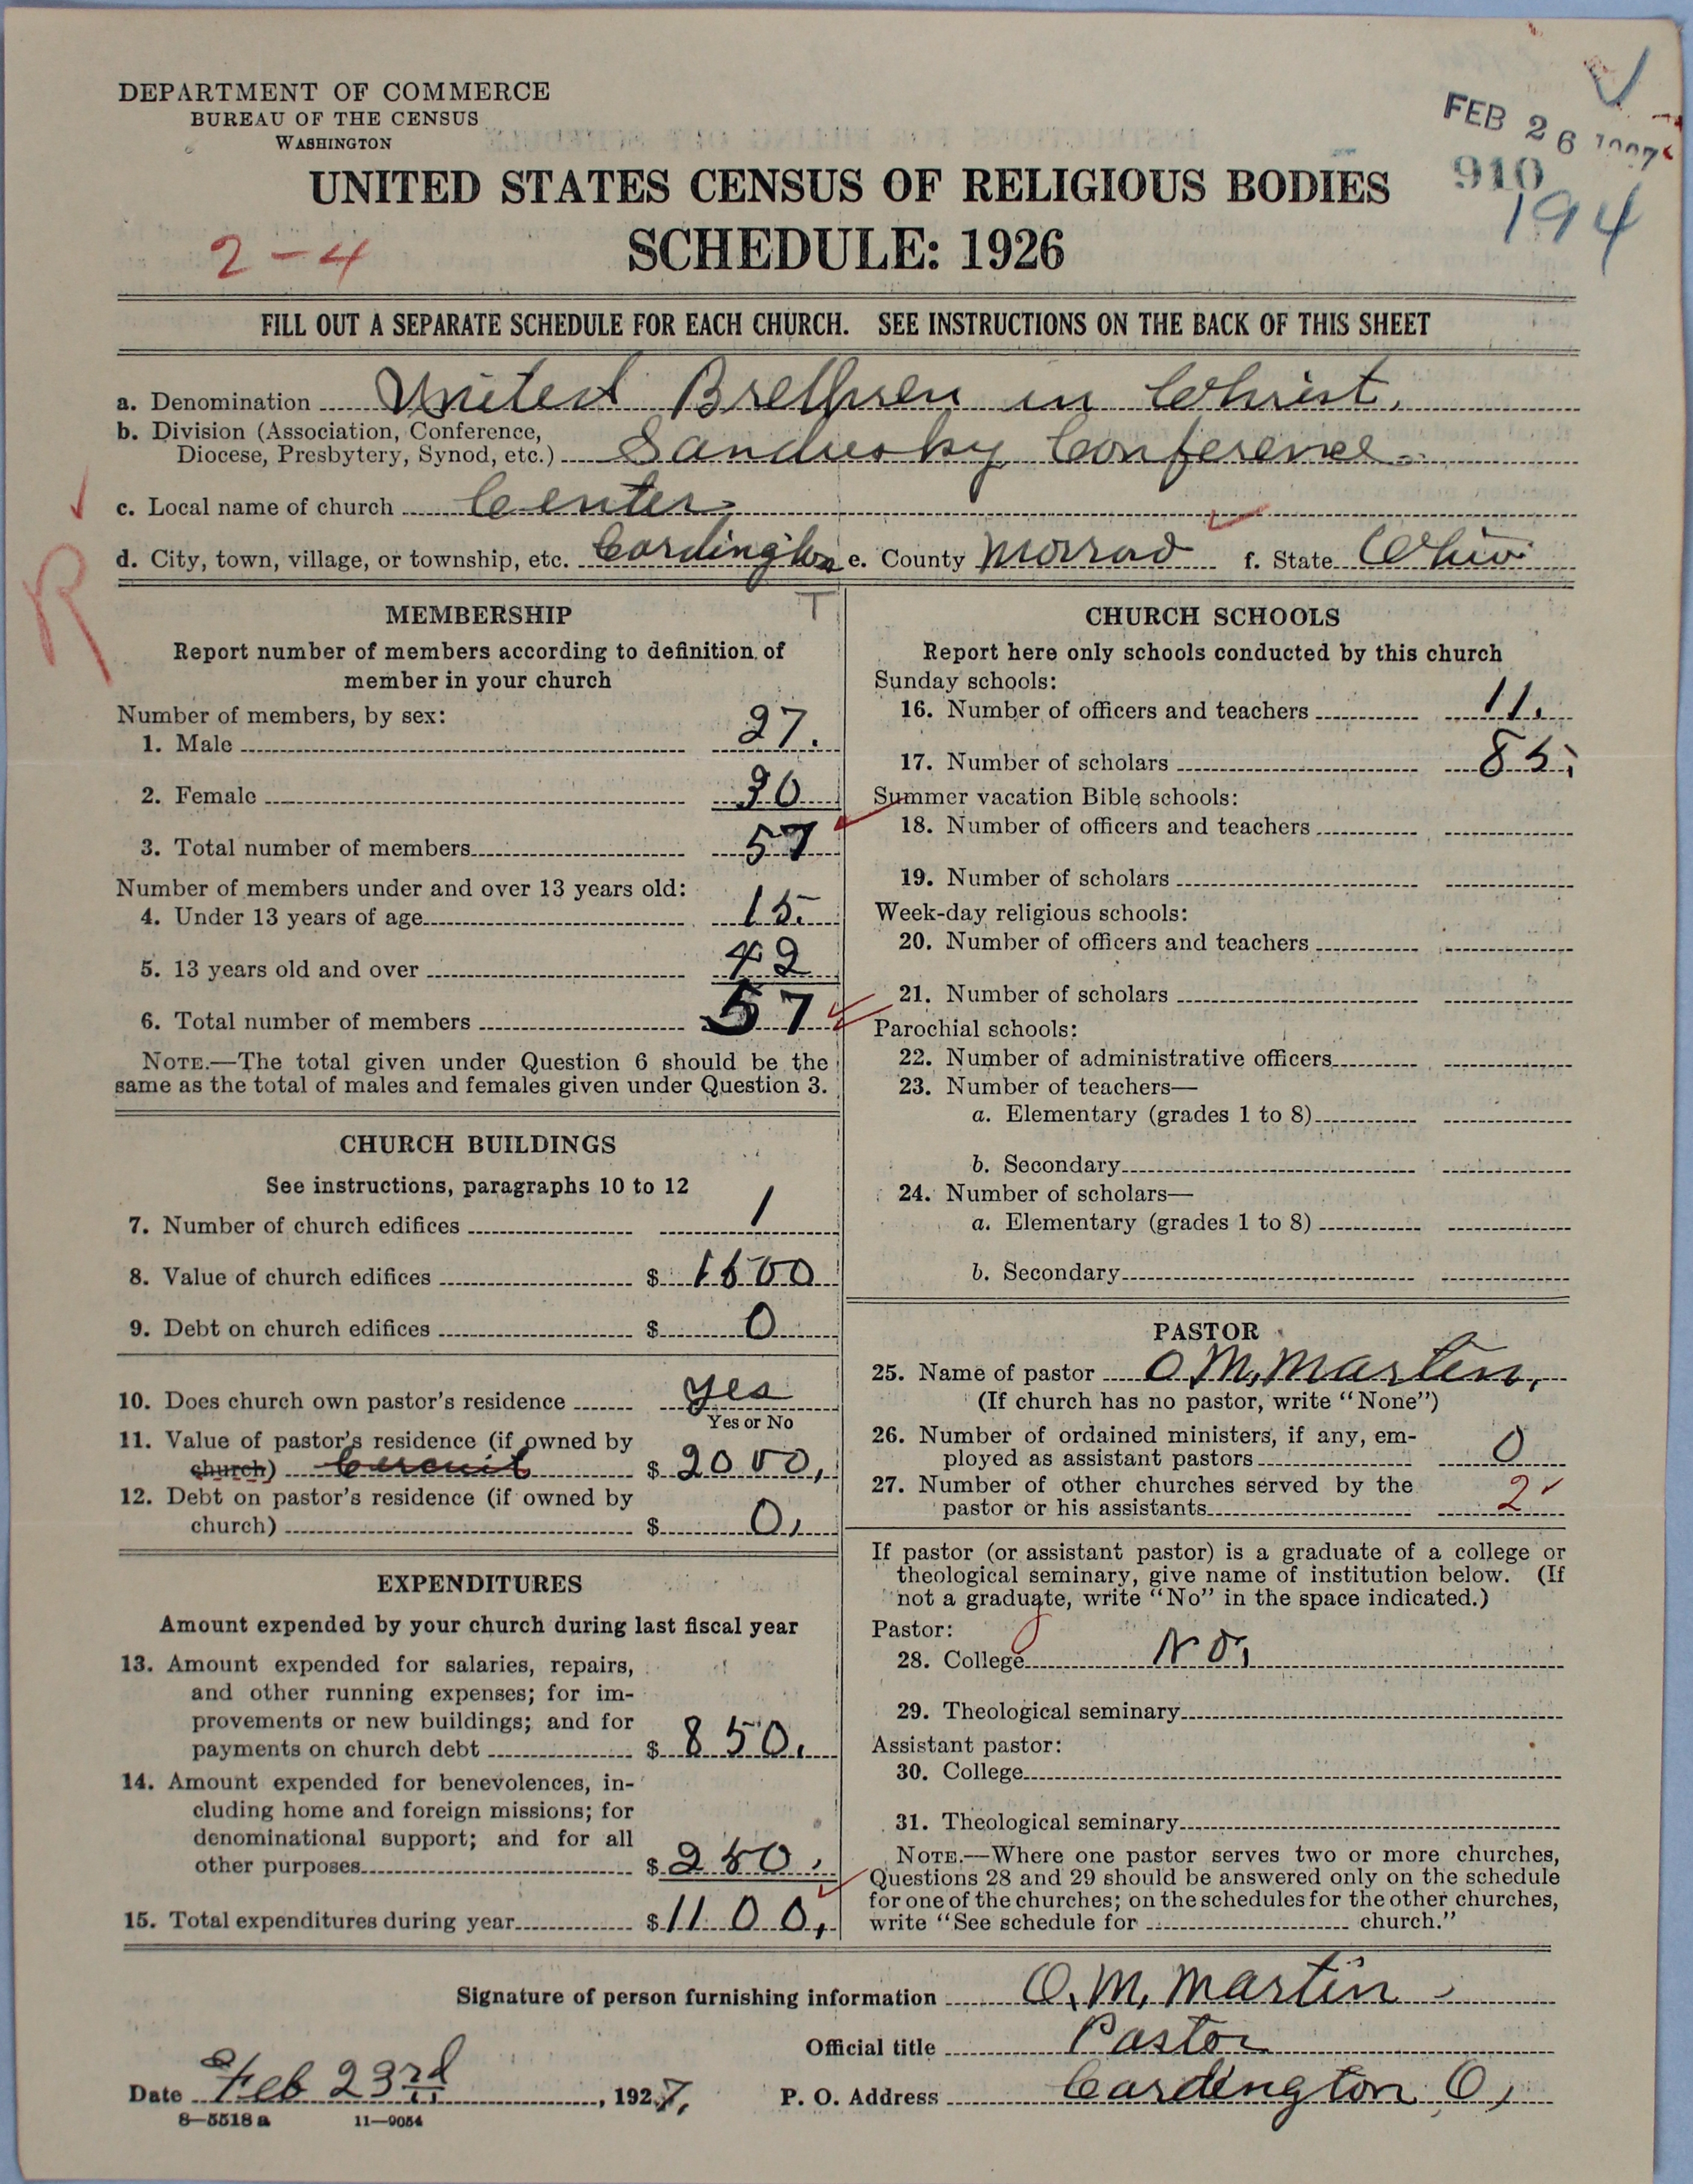 DEPARTMENT OF COMMERCE
BUREAU OF THE CENSUS
WASHINGTON
FEB 26 1927
910
194
UNITED STATES CENSUS OF RELIGIOUS BODIES
2-4
SCHEDULE: 1926
FILL OUT A SEPARATE SCHEDULE FOR EACH CHURCH. SEE INSTRUCTIONS ON THE BACK OF THIS SHEET
a. Denomination United Brethren in Christ.
b. Division (Association, Conference,
Diocese, Presbytery, Synod, etc.) Sandusky Conference
c. Local name of church Center
d. City, town, village, or township, etc. Cardington e. County Morrow f. State Ohio
R
T
MEMBERSHIP
Report number of members according to definition of
member in your church
Number of members, by sex:
1. Male 27.
2. Female 30
3. Total number of members 57
Number of members under and over 13 years old:
4. Under 13 years of age 15.
5. 13 years old and over 42
6. Total number of members 57
NOTE.—The total given under Question 6 should be the
same as the total of males and females given under Question 3.
CHURCH BUILDINGS
See instructions, paragraphs 10 to 12
7. Number of church edifices 1
8. Value of church edifices $ 1500
9. Debt on church edifices $ 0
10. Does church own pastor's residence yes
Yes or No
11. Value of pastor's residence (if owned by
church) Circuit $ 2000,
12. Debt on pastor's residence (if owned by
church) $ 0,
EXPENDITURES
Amount expended by your church during last fiscal year
13. Amount expended for salaries, repairs,
and other running expenses; for im-
provements or new buildings; and for
payments on church debt $ 850.
14. Amount expended for benevolences, in-
cluding home and foreign missions; for
denominational support; and for all
other purposes $ 250.
15. Total expenditures during year $ 1100,
CHURCH SCHOOLS
Report here only schools conducted by this church
Sunday schools:
16. Number of officers and teachers 11.
17. Number of scholars 85.
Summer vacation Bible schools:
18. Number of officers and teachers
19. Number of scholars
Week-day religious schools:
20. Number of officers and teachers
21. Number of scholars
Parochial schools:
22. Number of administrative officers
23. Number of teachers—
a. Elementary (grades 1 to 8)
b. Secondary
24. Number of scholars—
a. Elementary (grades 1 to 8)
b. Secondary
PASTOR
25. Name of pastor O M. Martin,
(If church has no pastor, write "None")
26. Number of ordained ministers, if any, em-
ployed as assistant pastors 0
27. Number of other churches served by the
pastor or his assistants 2
If pastor (or assistant pastor) is a graduate of a college or
theological seminary, give name of institution below. (If
not a graduate, write "No" in the space indicated.)
Pastor:
28. College No,
29. Theological seminary
Assistant pastor:
30. College
31. Theological seminary
NOTE.—Where one pastor serves two or more churches,
Questions 28 and 29 should be answered only on the schedule
for one of the churches; on the schedules for the other churches,
write "See schedule for church."
Signature of person furnishing information O. M. Martin
Official title Pastor
Date Feb 23rd, 1927, P. O. Address Cardington O,
8—5518a 11—9054